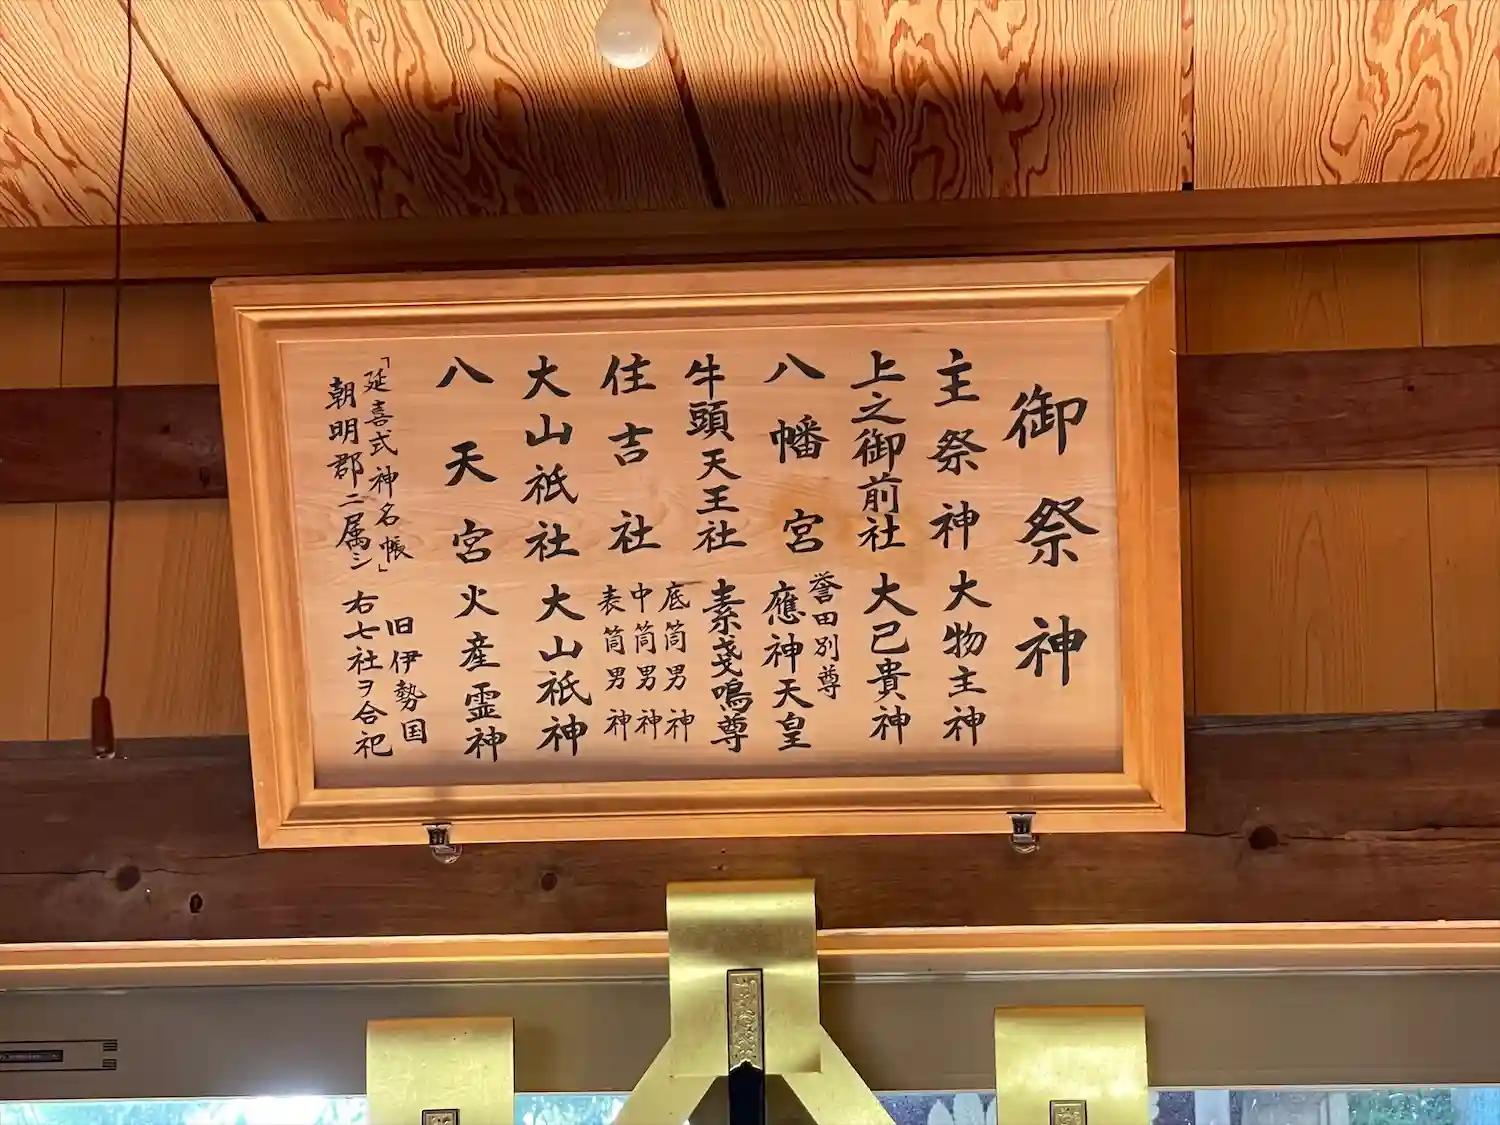 御祭神
主祭神 大物主神
上之御前社 大己貴神
八幡宮 誉田別尊
應神天皇
牛頭天王社 素戔嗚尊
住吉社 底筒男神
中筒男神
表筒男神
大山祇社 大山祇神
八天宮 火産霊神
「延喜式神名帳」旧伊勢国
朝明郡ニ属シ 右七社ヲ合祀